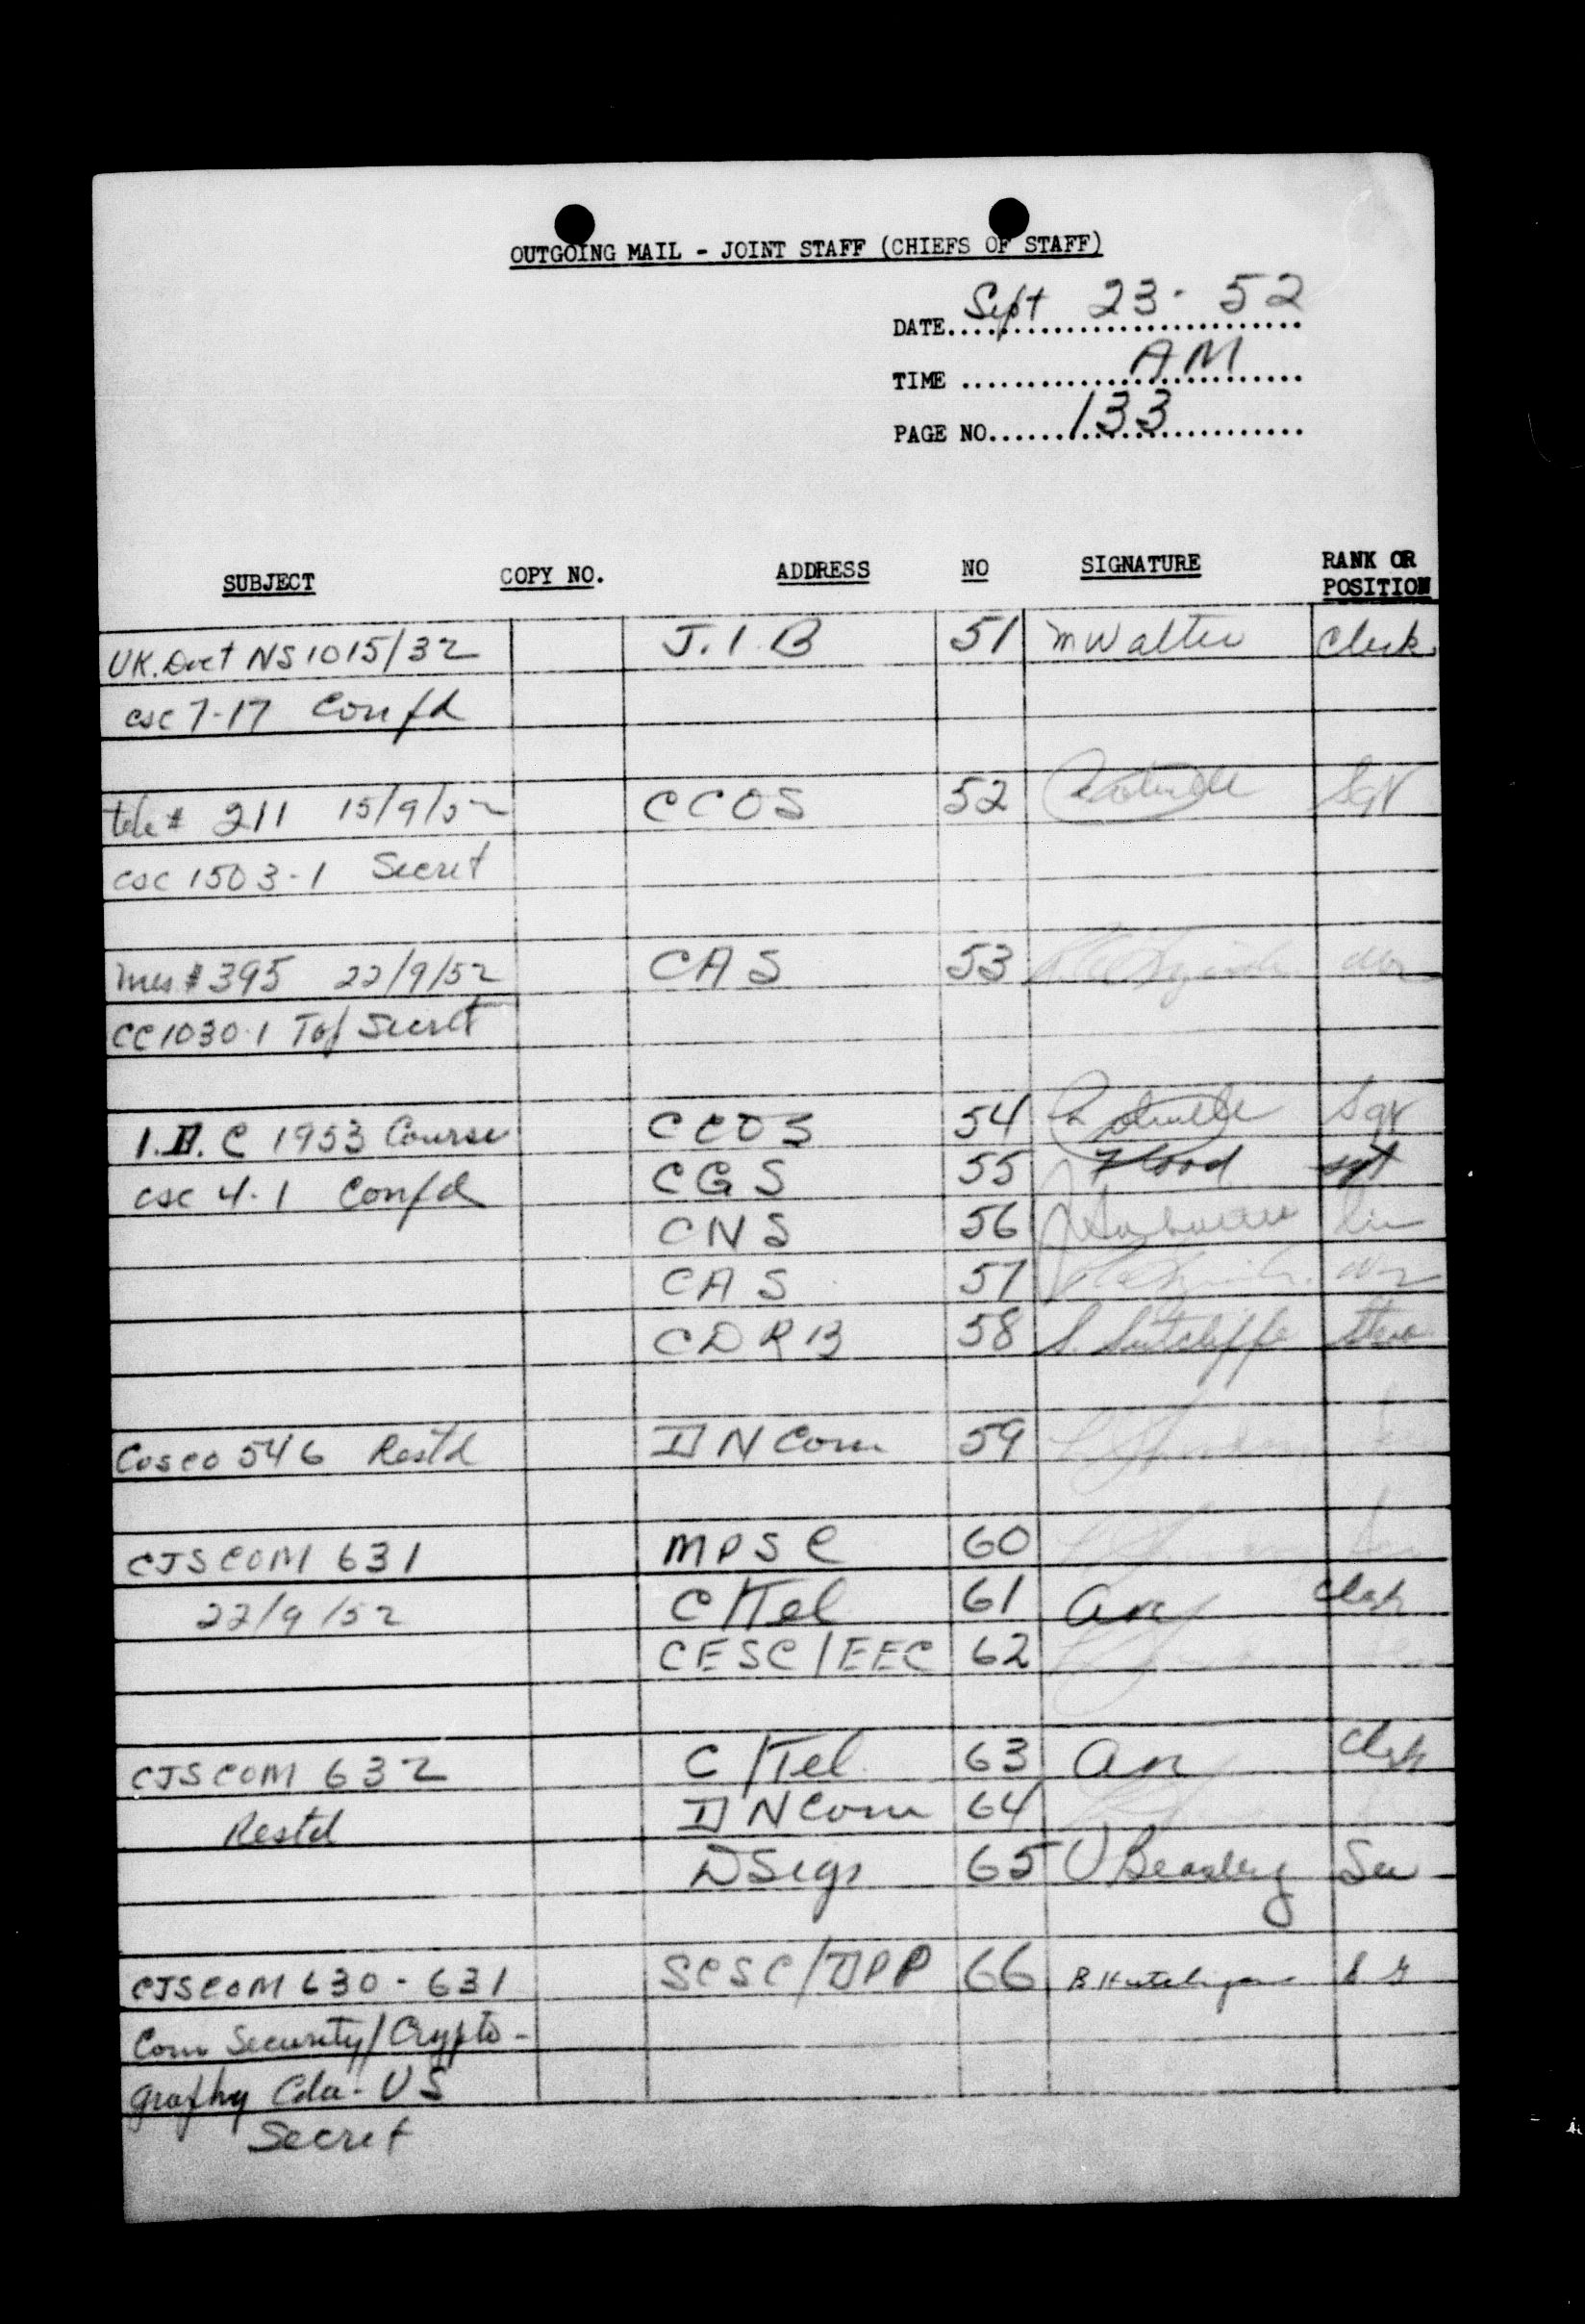 OUTGOING MAIL - JOINT STAFF (CHIEFS OF STAFF)
DATE Sept 23 - 52
TIME AM
PAGE NO. 133
SUBJECT COPY NO. ADDRESS NO SIGNATURE RANK OR POSITION
UK. Doct NS1015/32 J.I.B 51 M Walter Clerk
csc 7-17 Confd
tele # 211 15/9/52 CCOS 52 Sgt
csc 1503-1 Secret
Mes # 395 22/9/52 CAS 53
CC1030-1 Top Secret
I.D.C 1953 Course CCOS 54 Sgt
csc 4-1 Confd CGS 55 Flood sgt
CNS 56
CAS 57
CDRB 58 S. Sutcliffe Steno
Cosco 546 Restd DN Com 59
CJSCOM 631 MPSC 60
22/9/52 C/Tel 61 Clerk
CESC/EEC 62
CJSCOM 632 C/Tel 63 Clerk
Restd DN Com 64
DSigs 65 V Beasley Sec
CJSCOM 630-631 SCSC/JPP 66
Com Security/Crypto-
graphy Cda-US
Secret